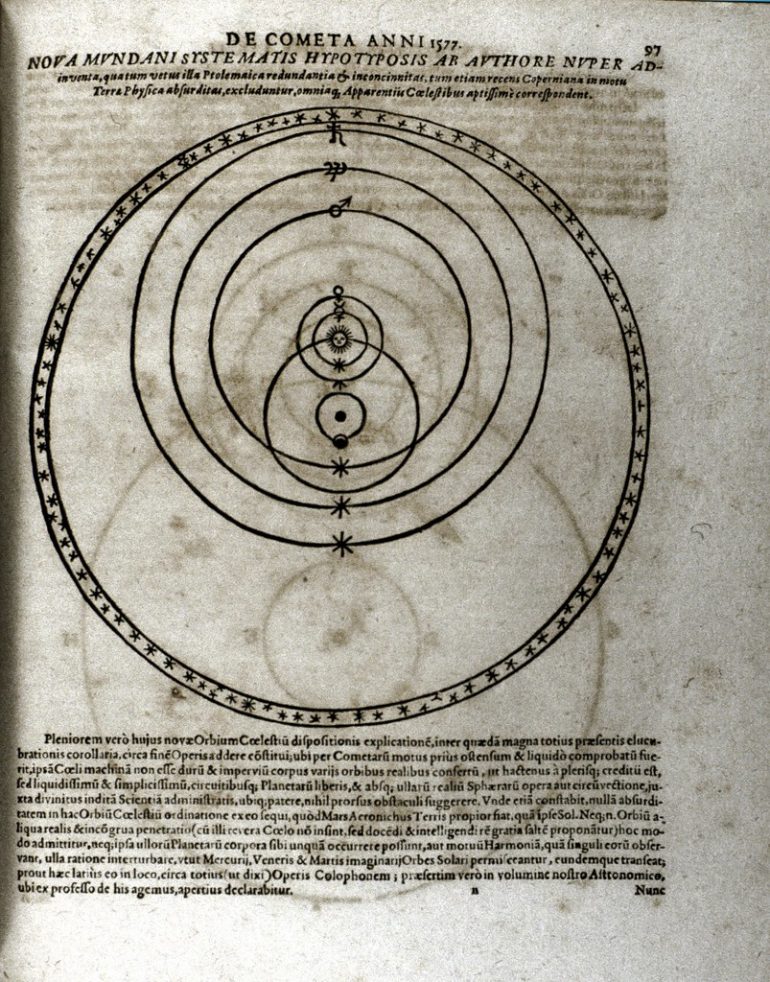 DE COMETA ANNI 1577.
97
NOVA MVNDANI SYSTEMATIS HYPOTYPOSIS AB AVTHORE NVPER AD-
inventa, qua tum vetus illa Ptolemaica redundantia & inconcinnitas, tum etiam recens Coperniana in motu
Terræ Physica absurditas, excluduntur, omniaq; Apparentiis Cœlestibus aptissimè correspondent.
Pleniorem verò hujus novæ Orbium Cœlestiū dispositionis explicationē, inter quædā magna totius præsentis elucu-
brationis corollaria, circa finē Operis addere cōstitui; ubi per Cometarū motus prius ostensum & liquidò comprobatū fue-
rit, ipsā Cœli machinā non esse durū & imperviū corpus varijs orbibus realibus confertū, ut hactenus à plerisq; creditū est,
sed liquidissimū & simplicissimū, circuitibusq; Planetarū liberis, & absq; ullarū realiū Sphærarū opera aut circūvectione, ju-
xta divinitus inditā Scientiā administratis, ubiq; patere, nihil prorsus obstaculi suggerere. Vnde etiā constabit, nullā absurdi-
tatem in hac Orbiū Cœlestiū ordinatione ex eo sequi, quòd Mars Acronichus Terris propior fiat, quā ipse Sol. Neq; n. Orbiū a-
liqua realis & incōgrua penetratio (cū illi revera Cœlo nō insint, sed docēdi & intelligendi rē gratia saltē proponātur) hoc mo-
do admittitur, neq; ipsa ullorū Planetarū corpora sibi unquā occurrere possunt, aut motuū Harmoniā, quā singuli eorū obser-
vant, ulla ratione interturbare, vtut Mercurij, Veneris & Martis imaginarij Orbes Solari permisceantur, eundemque transeāt;
prout hæc latiùs eo in loco, circa totius (ut dixi) Operis Colophonem; præsertim verò in volumine nostro Astronomico,
ubi ex professo de his agemus, apertius declarabitur.
n
Nunc